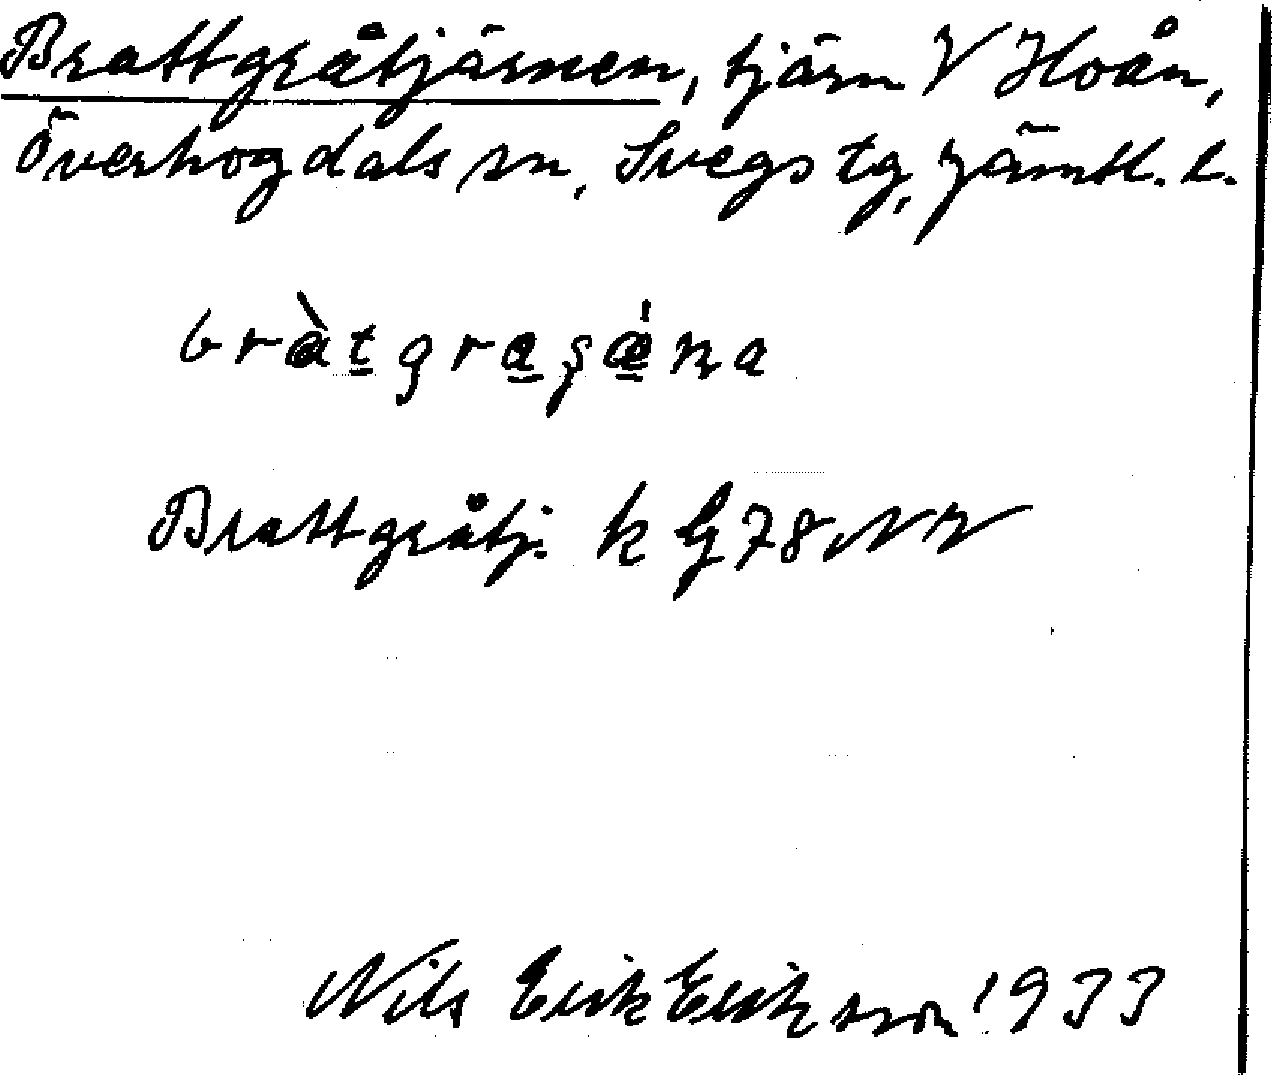 Brattgråtjärnen, tjärn V Hoån,
Överhogdals sn, Svegs tg, Jämtl. l.
bràt̲gra̲ʂǽ̲na
Brattgråtj. k G78 NV
Nils Erik Eriksson 1933